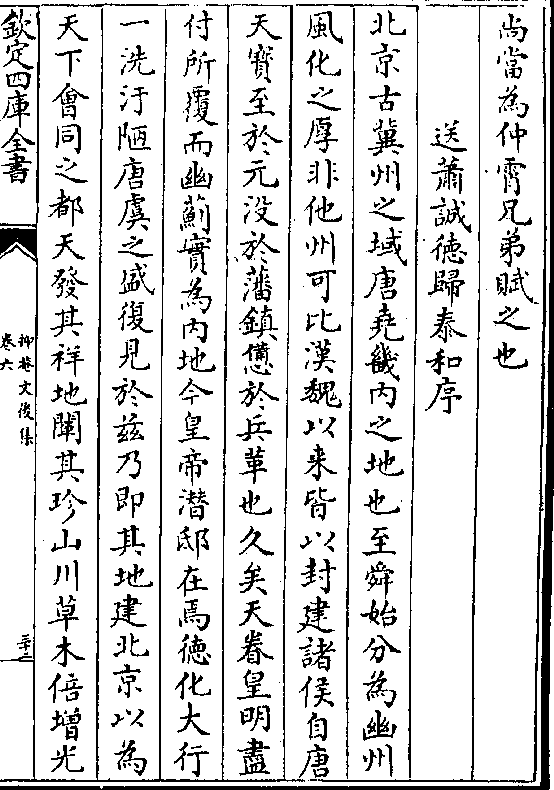 尚當為仲霄兄弟賦之也
送蕭誠徳歸泰和序
北京古冀州之域唐堯畿内之地也至舜始分為幽州
風化之厚非他州可比漢魏以来皆以封建諸侯自唐
天寶至於元没於藩鎮憊於兵革也久矣天眷皇明盡
付所覆而幽薊實為内地今皇帝潛邸在焉徳化大行
一洗汙陋唐虞之盛復見於兹乃即其地建北京以為
天下會同之都天發其祥地闡其珍山川草木倍增光
欽定四庫全書
抑菴文後集
卷六